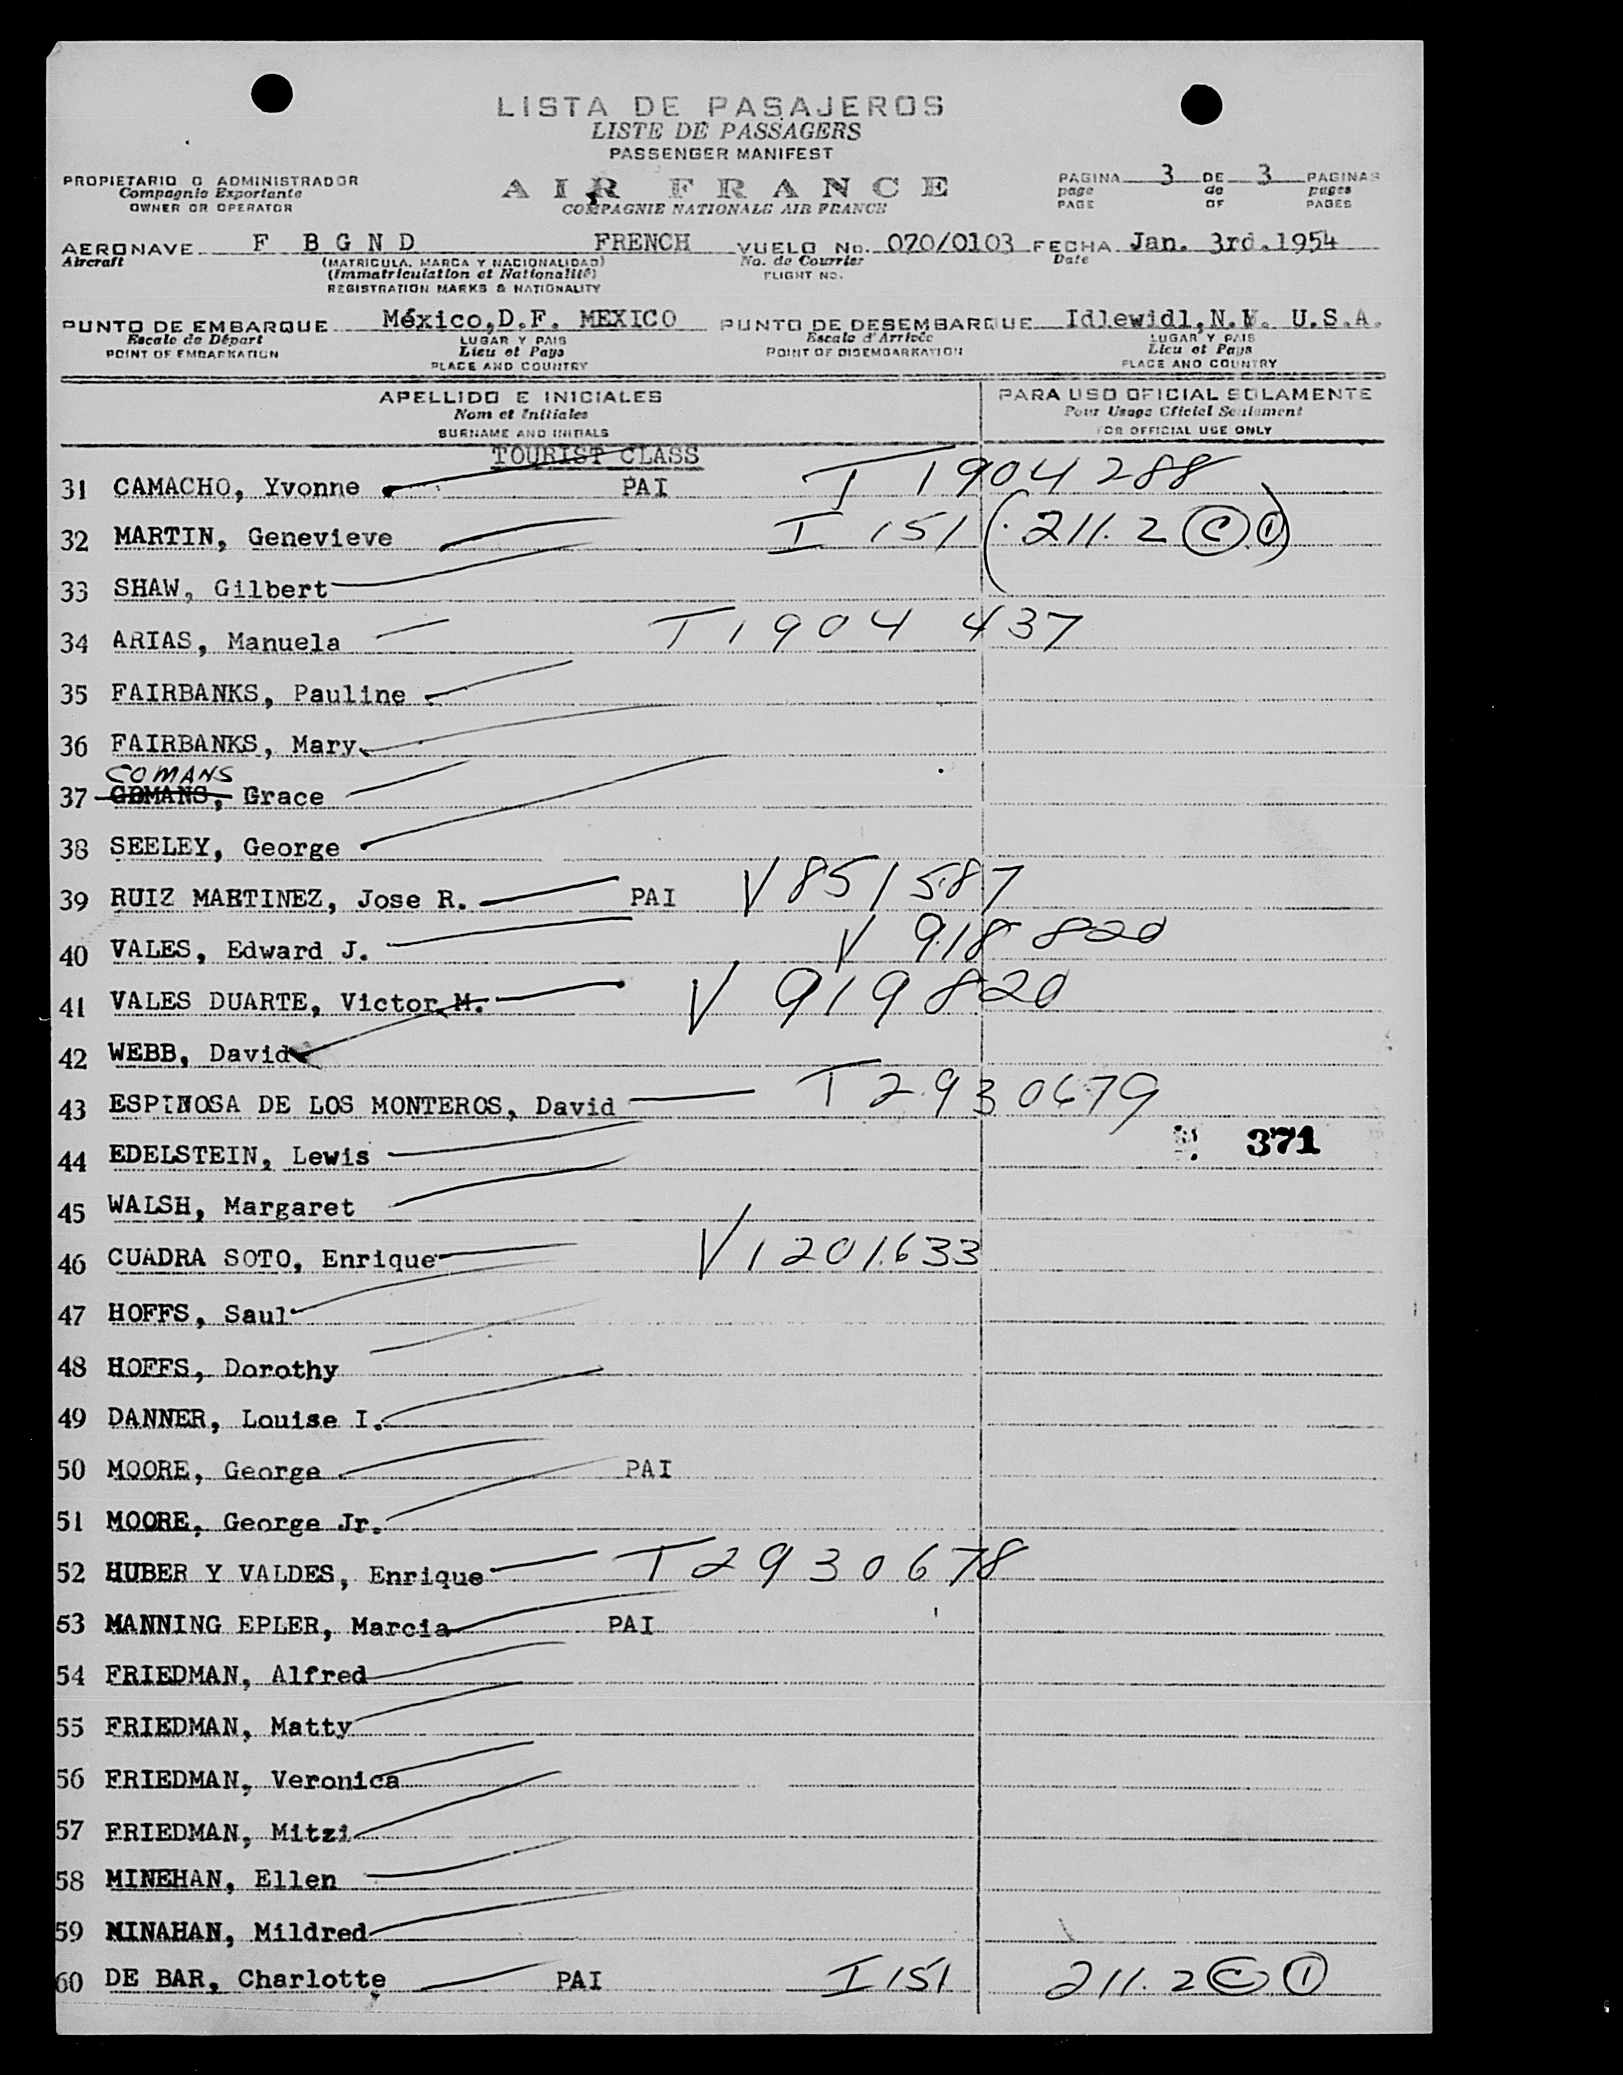 LISTA DE PASAJEROS
LISTE DE PASSAGERS
PASSENGER MANIFEST
PROPIETARIO O ADMINISTRADOR
Compagnie Exportante
OWNER OR OPERATOR
AIR FRANCE
COMPAGNIE NATIONALE AIR FRANCE
PAGINA 3 DE 3 PAGINAS
page de pages
PAGE OF PAGES
AERONAVE F B G N D FRENCH VUELO No. 070/0103 FECHA Jan. 3rd.1954
Aircraft (MATRICULA, MARCA Y NACIONALIDAD) No. de Courrier Date
(Immatriculation et Nationalité) FLIGHT NO.
REGISTRATION MARKS & NATIONALITY
PUNTO DE EMBARQUE México,D.F. MEXICO PUNTO DE DESEMBARQUE Idlewidl,N.Y. U.S.A.
Escale de Départ LUGAR Y PAIS Escale d'Arrivée LUGAR Y PAIS
POINT OF EMBARKATION Lieu et Pays POINT OF DISEMBARKATION Lieu et Pays
PLACE AND COUNTRY PLACE AND COUNTRY
APELLIDO E INICIALES PARA USO OFICIAL SOLAMENTE
Nom et Initiales Pour Usage Officiel Seulement
SURNAME AND INITIALS FOR OFFICIAL USE ONLY
TOURIST CLASS
31 CAMACHO, Yvonne PAI T 1904288
32 MARTIN, Genevieve I 151 (211.2 C 1)
33 SHAW, Gilbert
34 ARIAS, Manuela T 1904 437
35 FAIRBANKS, Pauline
36 FAIRBANKS, Mary
COMANS
37 GOMANS, Grace
38 SEELEY, George
39 RUIZ MARTINEZ, Jose R. PAI V 851587
40 VALES, Edward J. V 918 820
41 VALES DUARTE, Victor M. V 919820
42 WEBB, David
43 ESPINOSA DE LOS MONTEROS, David T 2930679
371
44 EDELSTEIN, Lewis
45 WALSH, Margaret
46 CUADRA SOTO, Enrique V 1201633
47 HOFFS, Saul
48 HOFFS, Dorothy
49 DANNER, Louise I.
50 MOORE, George PAI
51 MOORE, George Jr.
52 HUBER Y VALDES, Enrique T 2930678
53 MANNING EPLER, Marcia PAI
54 FRIEDMAN, Alfred
55 FRIEDMAN, Matty
56 FRIEDMAN, Veronica
57 FRIEDMAN, Mitzi
58 MINEHAN, Ellen
59 MINAHAN, Mildred
60 DE BAR, Charlotte PAI I 151 211.2 C 1